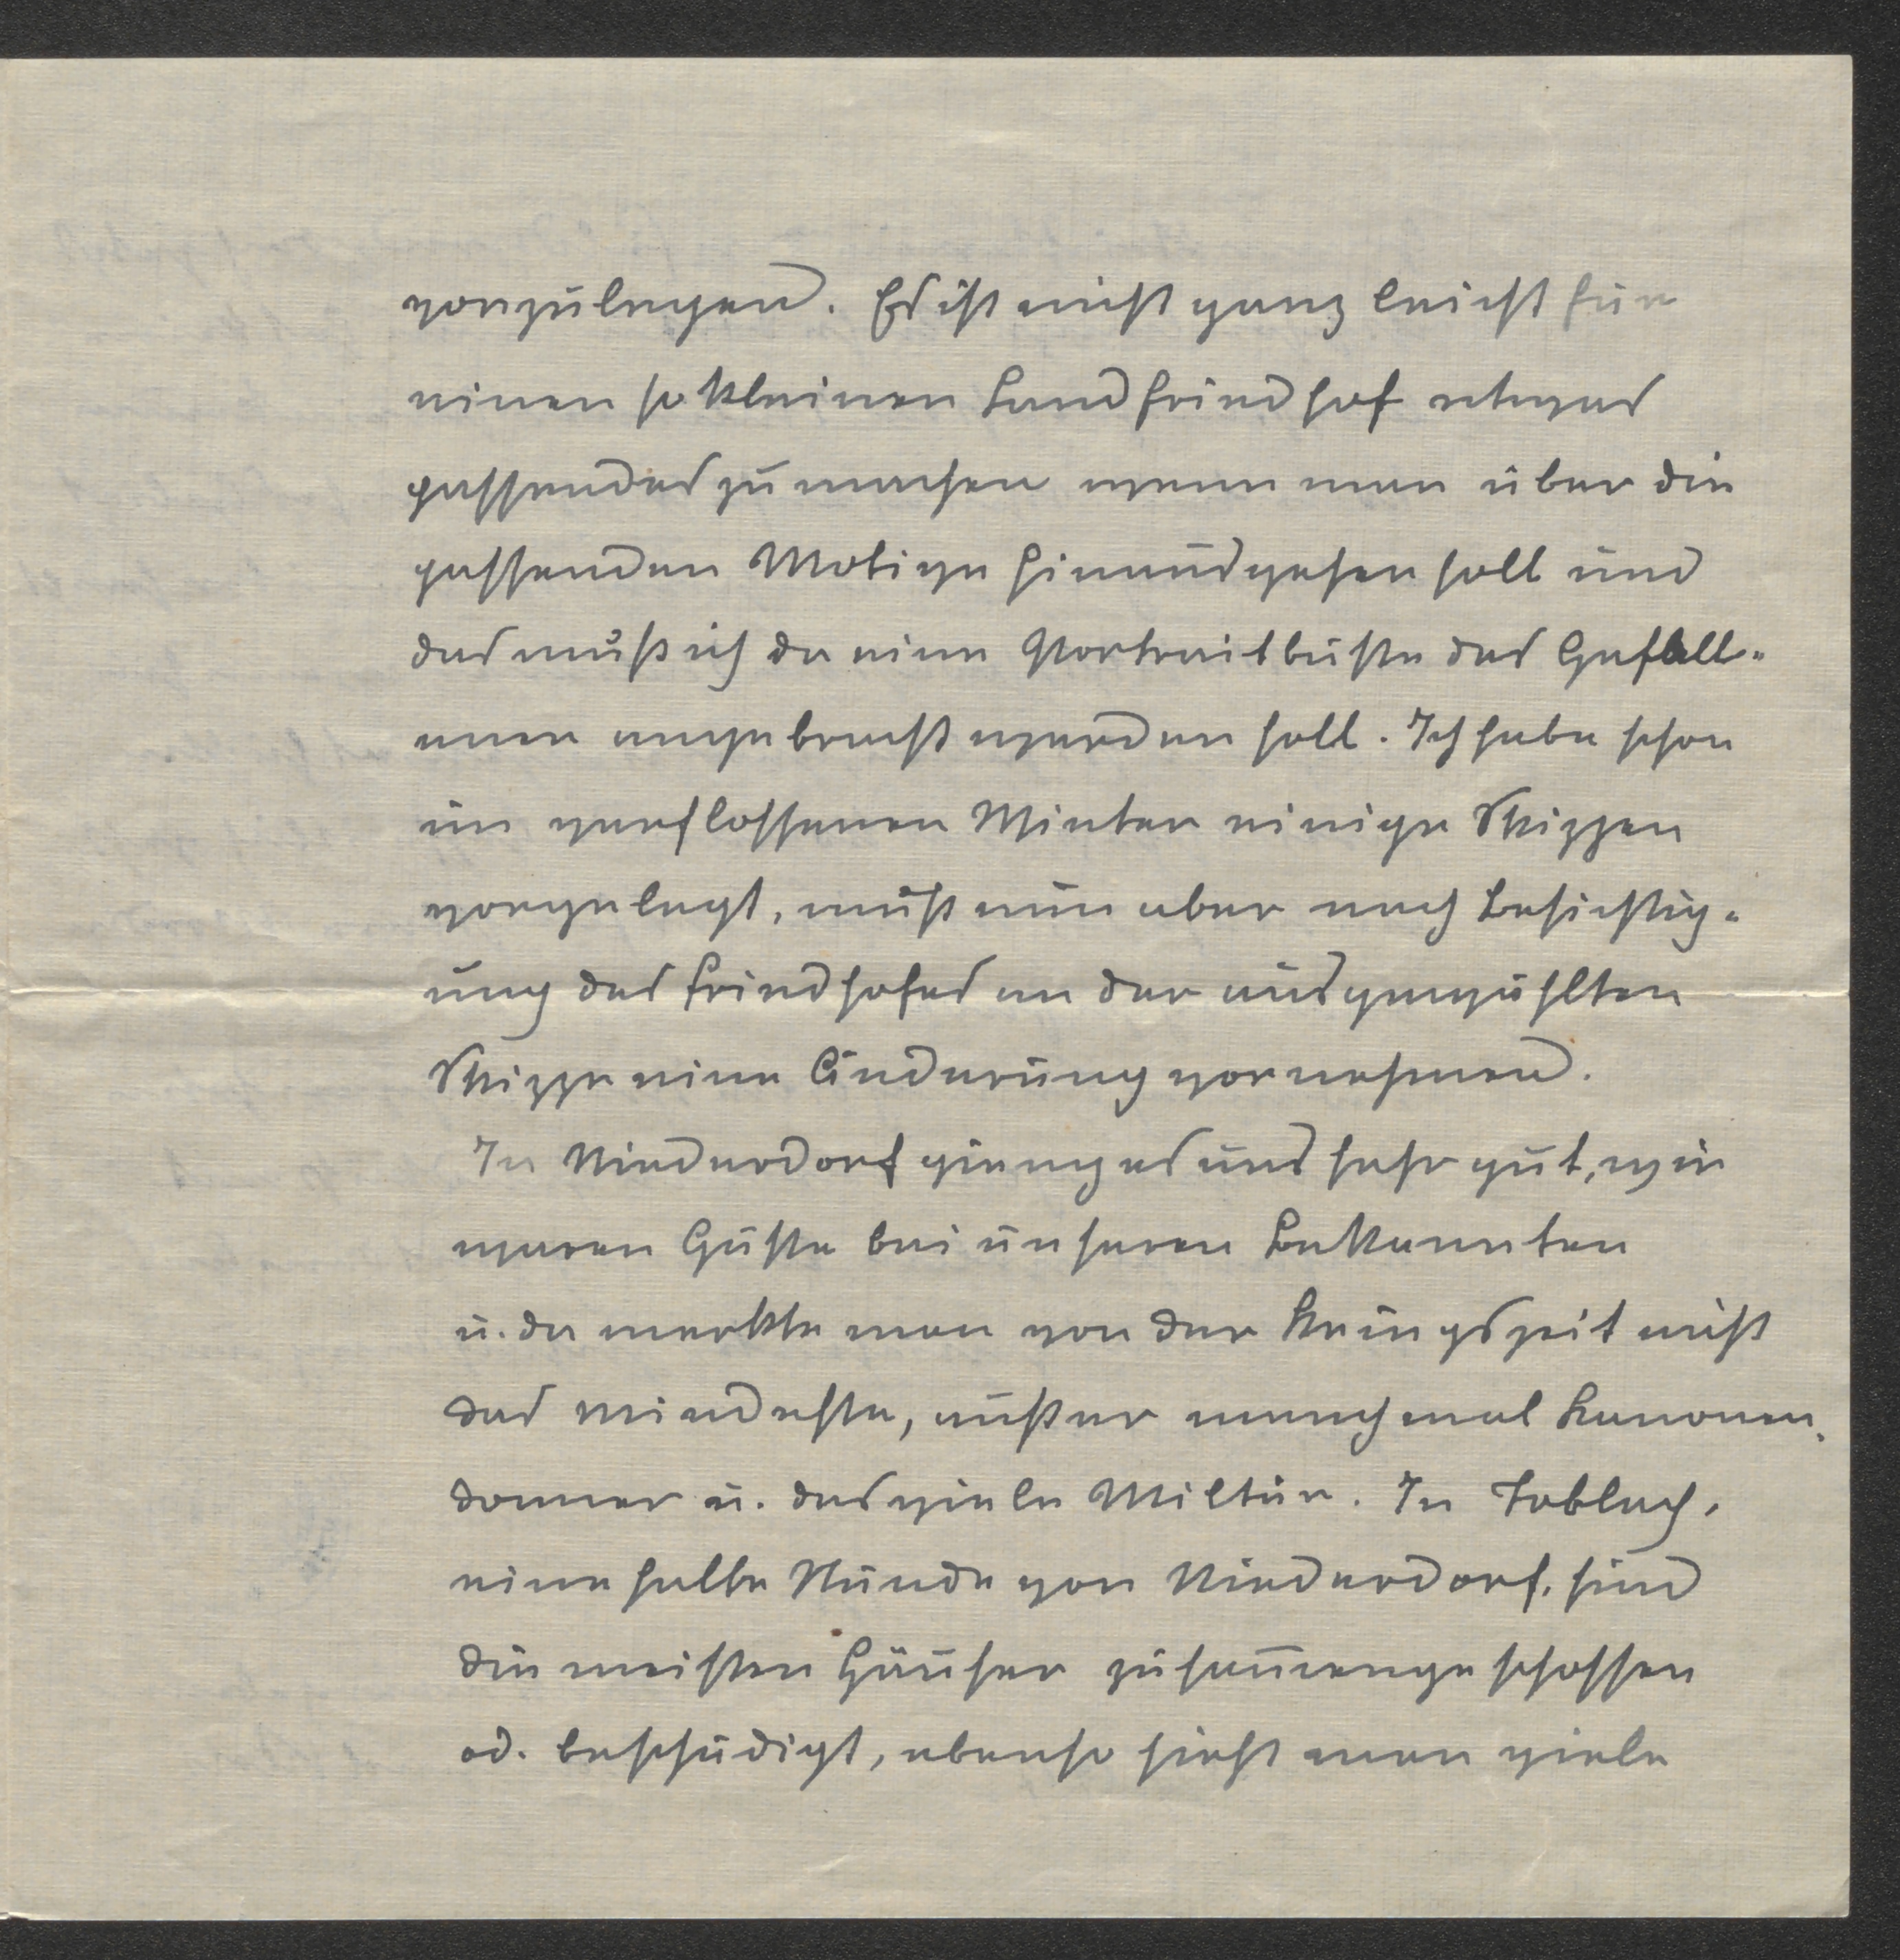 vorzulegen. Es ist nicht ganz leicht für
einen so kleinen Landfriedhof etwas
passendes zu machen wenn man über die
passenden Motive hinausgehen soll und
das muß ich da eine Portraitbüste des Gefall-
enen angebracht werden soll. Ich habe schon
im verflossenen Winter einige Skizzen
vorgelegt, muß nun aber nach Besichtig-
ung des Friedhofes an der ausgewählten
Skizze eine Änderung vornehmen.
In Niederdorf gieng es uns sehr gut, wir
waren Gäste bei unseren Bekannten
u. da merkte man von der Kriegszeit nicht
das mindeste, außer manchmal Kanonen-
donner u. das viele Miltär. In Toblach,
eine halbe Stunde von Niederdorf, sind
die meisten Häuser zusam̅engeschossen
od. beschädigt, ebenso sieht man viele